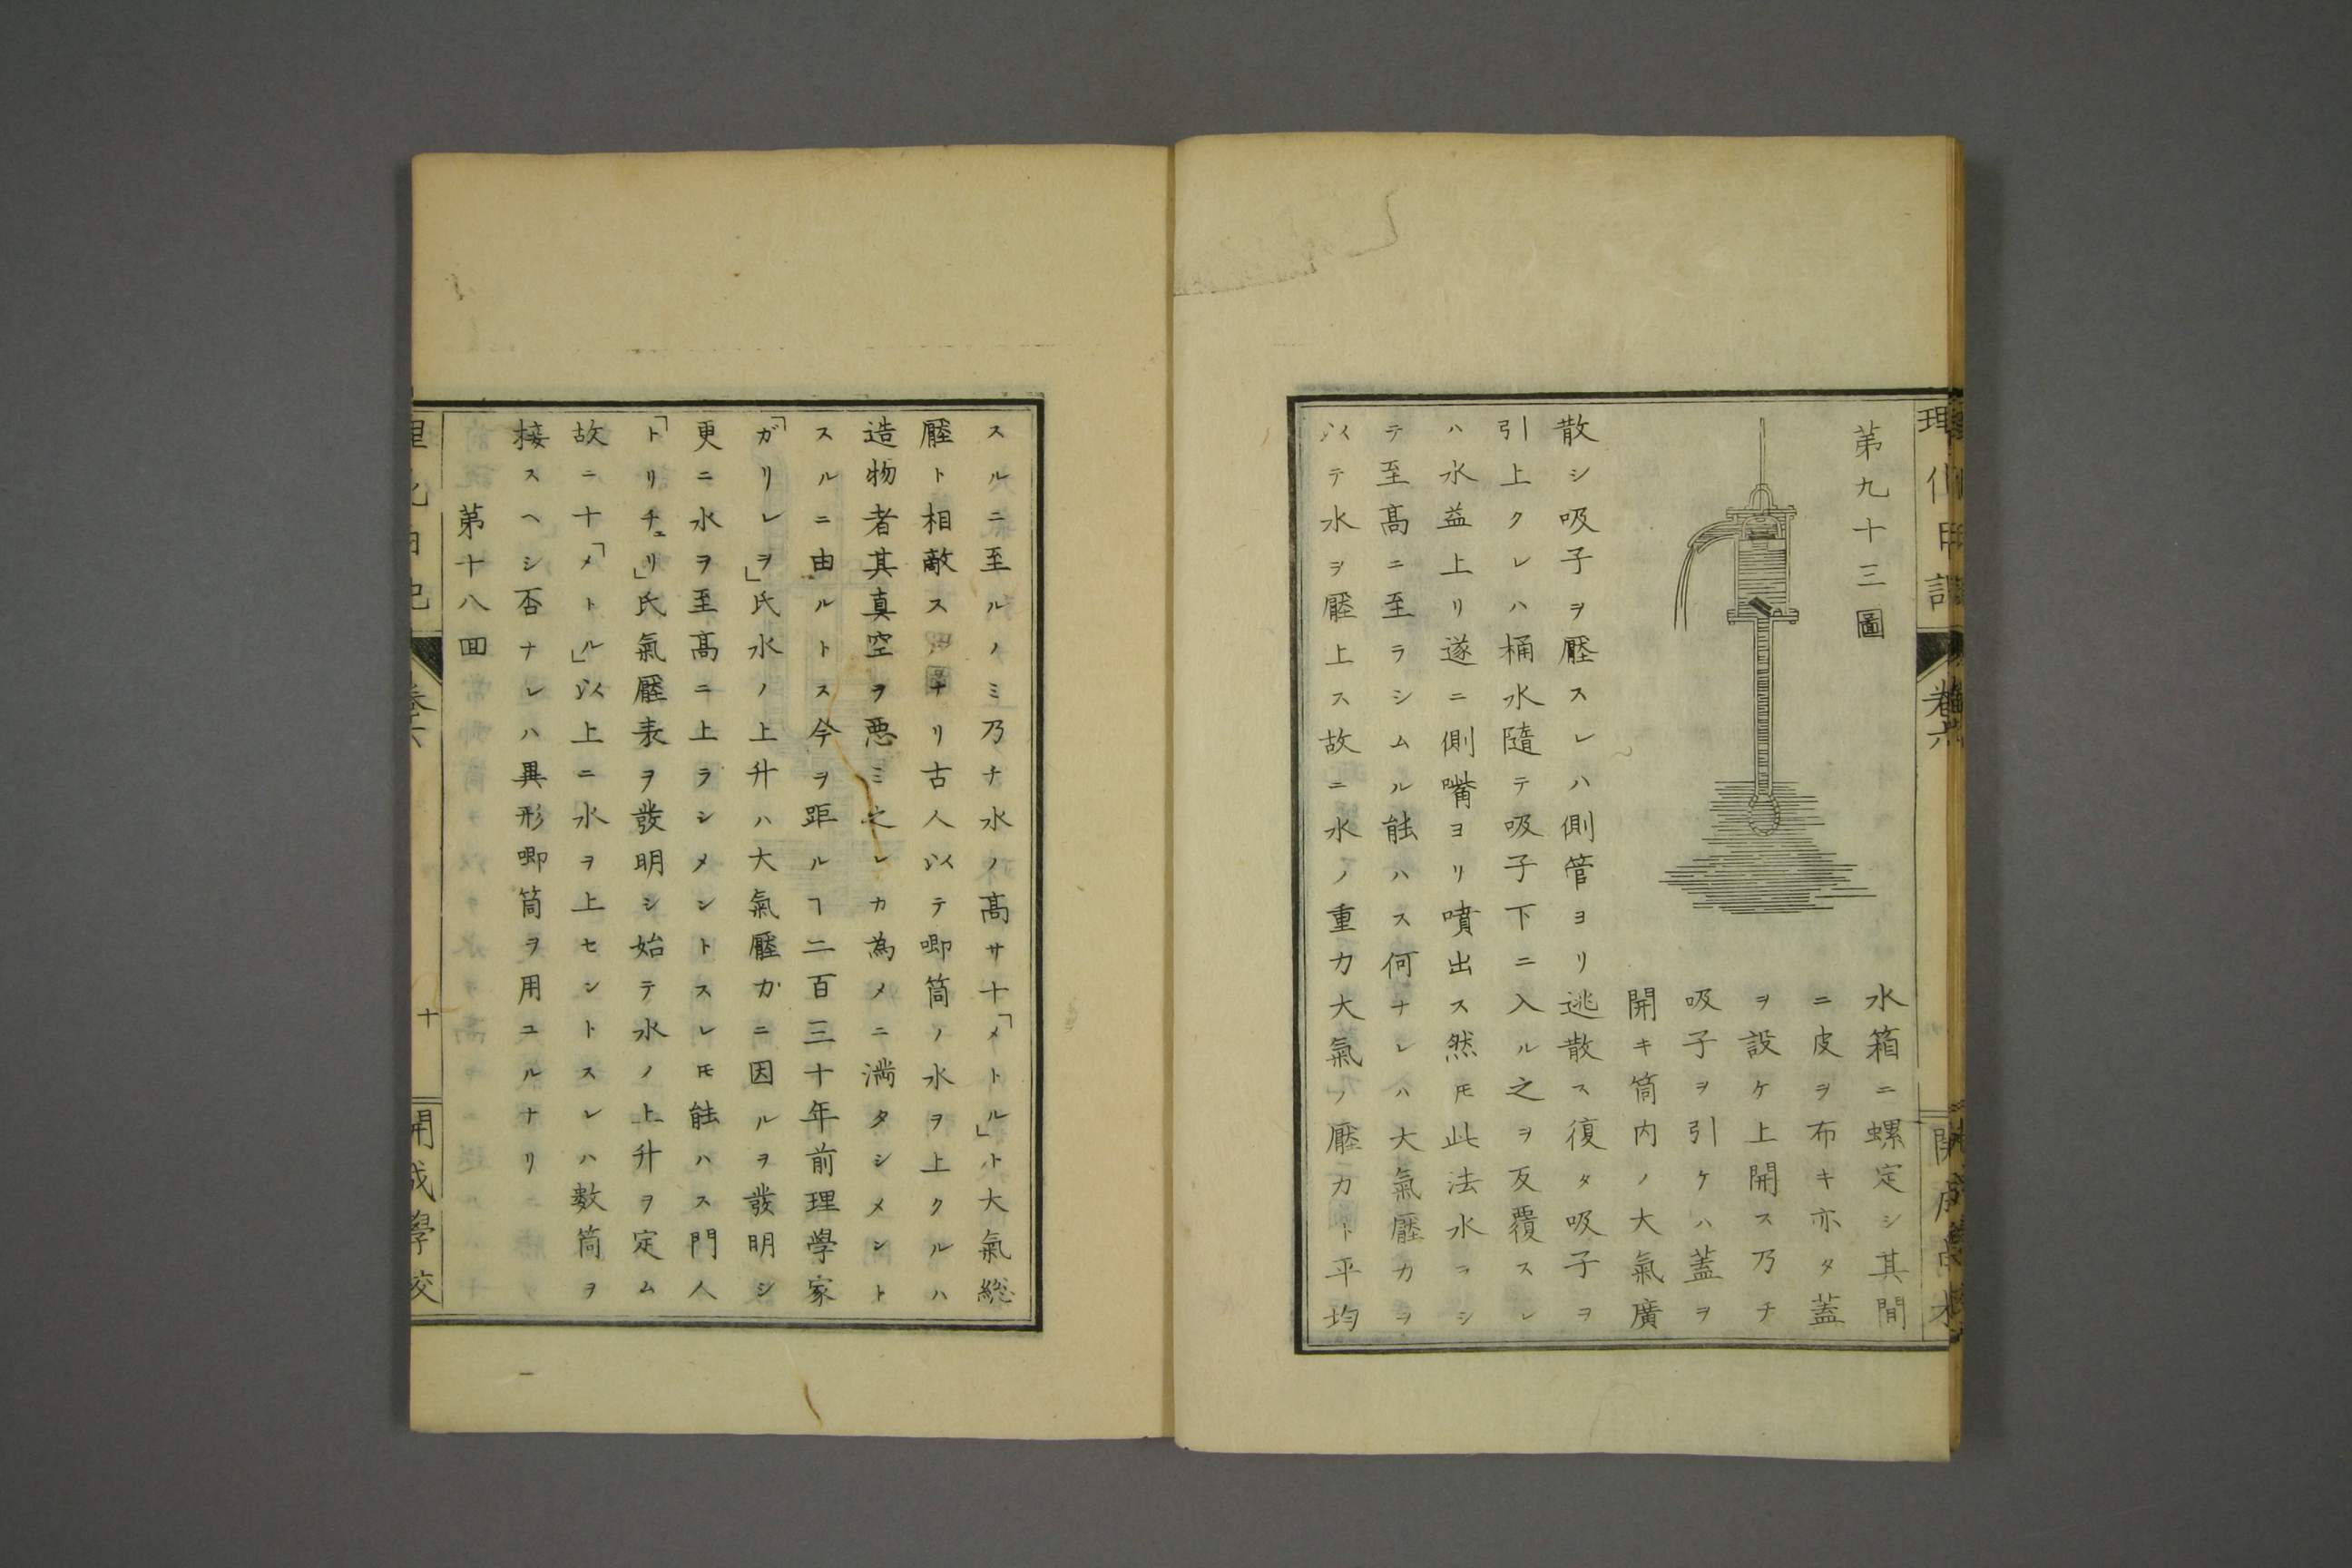 第九十三圖
水箱ニ螺定シ其間
ニ皮ヲ布キ亦タ蓋
ヲ設ケ上開ス乃チ
吸子ヲ引ケハ蓋ヲ
開キ筒内ノ大氣廣
散シ吸子ヲ壓スレハ側管ヨリ逃散ス復タ吸子ヲ
引上クレハ桶水隨テ吸子下ニ入ル之ヲ反覆スレ
ハ水益上リ遂ニ側嘴ヨリ噴出ス然𪜈此法水ヲシ
テ至髙ニ至ラシムル能ハス何ナレハ大氣壓力ヲ
以テ水ヲ壓上ス故ニ水ノ重力大氣ノ壓力ト平均
スルニ至ルノミ乃チ水ノ髙サ十「メトル」ト大氣総
壓ト相敵スナリ古人以テ喞筒ノ水ヲ上クルハ
造物者其真空ヲ悪ミ之レカ為メニ満タシメント
スルニ由ルトス今ヲ距ルヿ二百三十年前理學家
「ガリレヲ」氏水ノ上升ハ大氣壓力ニ因ルヲ發明シ
更ニ水ヲ至髙ニ上ラシメントスレ𪜈能ハス門人
「トリチェリ」氏氣壓表ヲ發明シ始テ水ノ上升ヲ定ム
故ニ十「メトル」以上ニ水ヲ上セントスレハ數筒ヲ
接スヘシ否ナレハ異形喞筒ヲ用ユルナリ
第十八回
卷六
十
開成學校